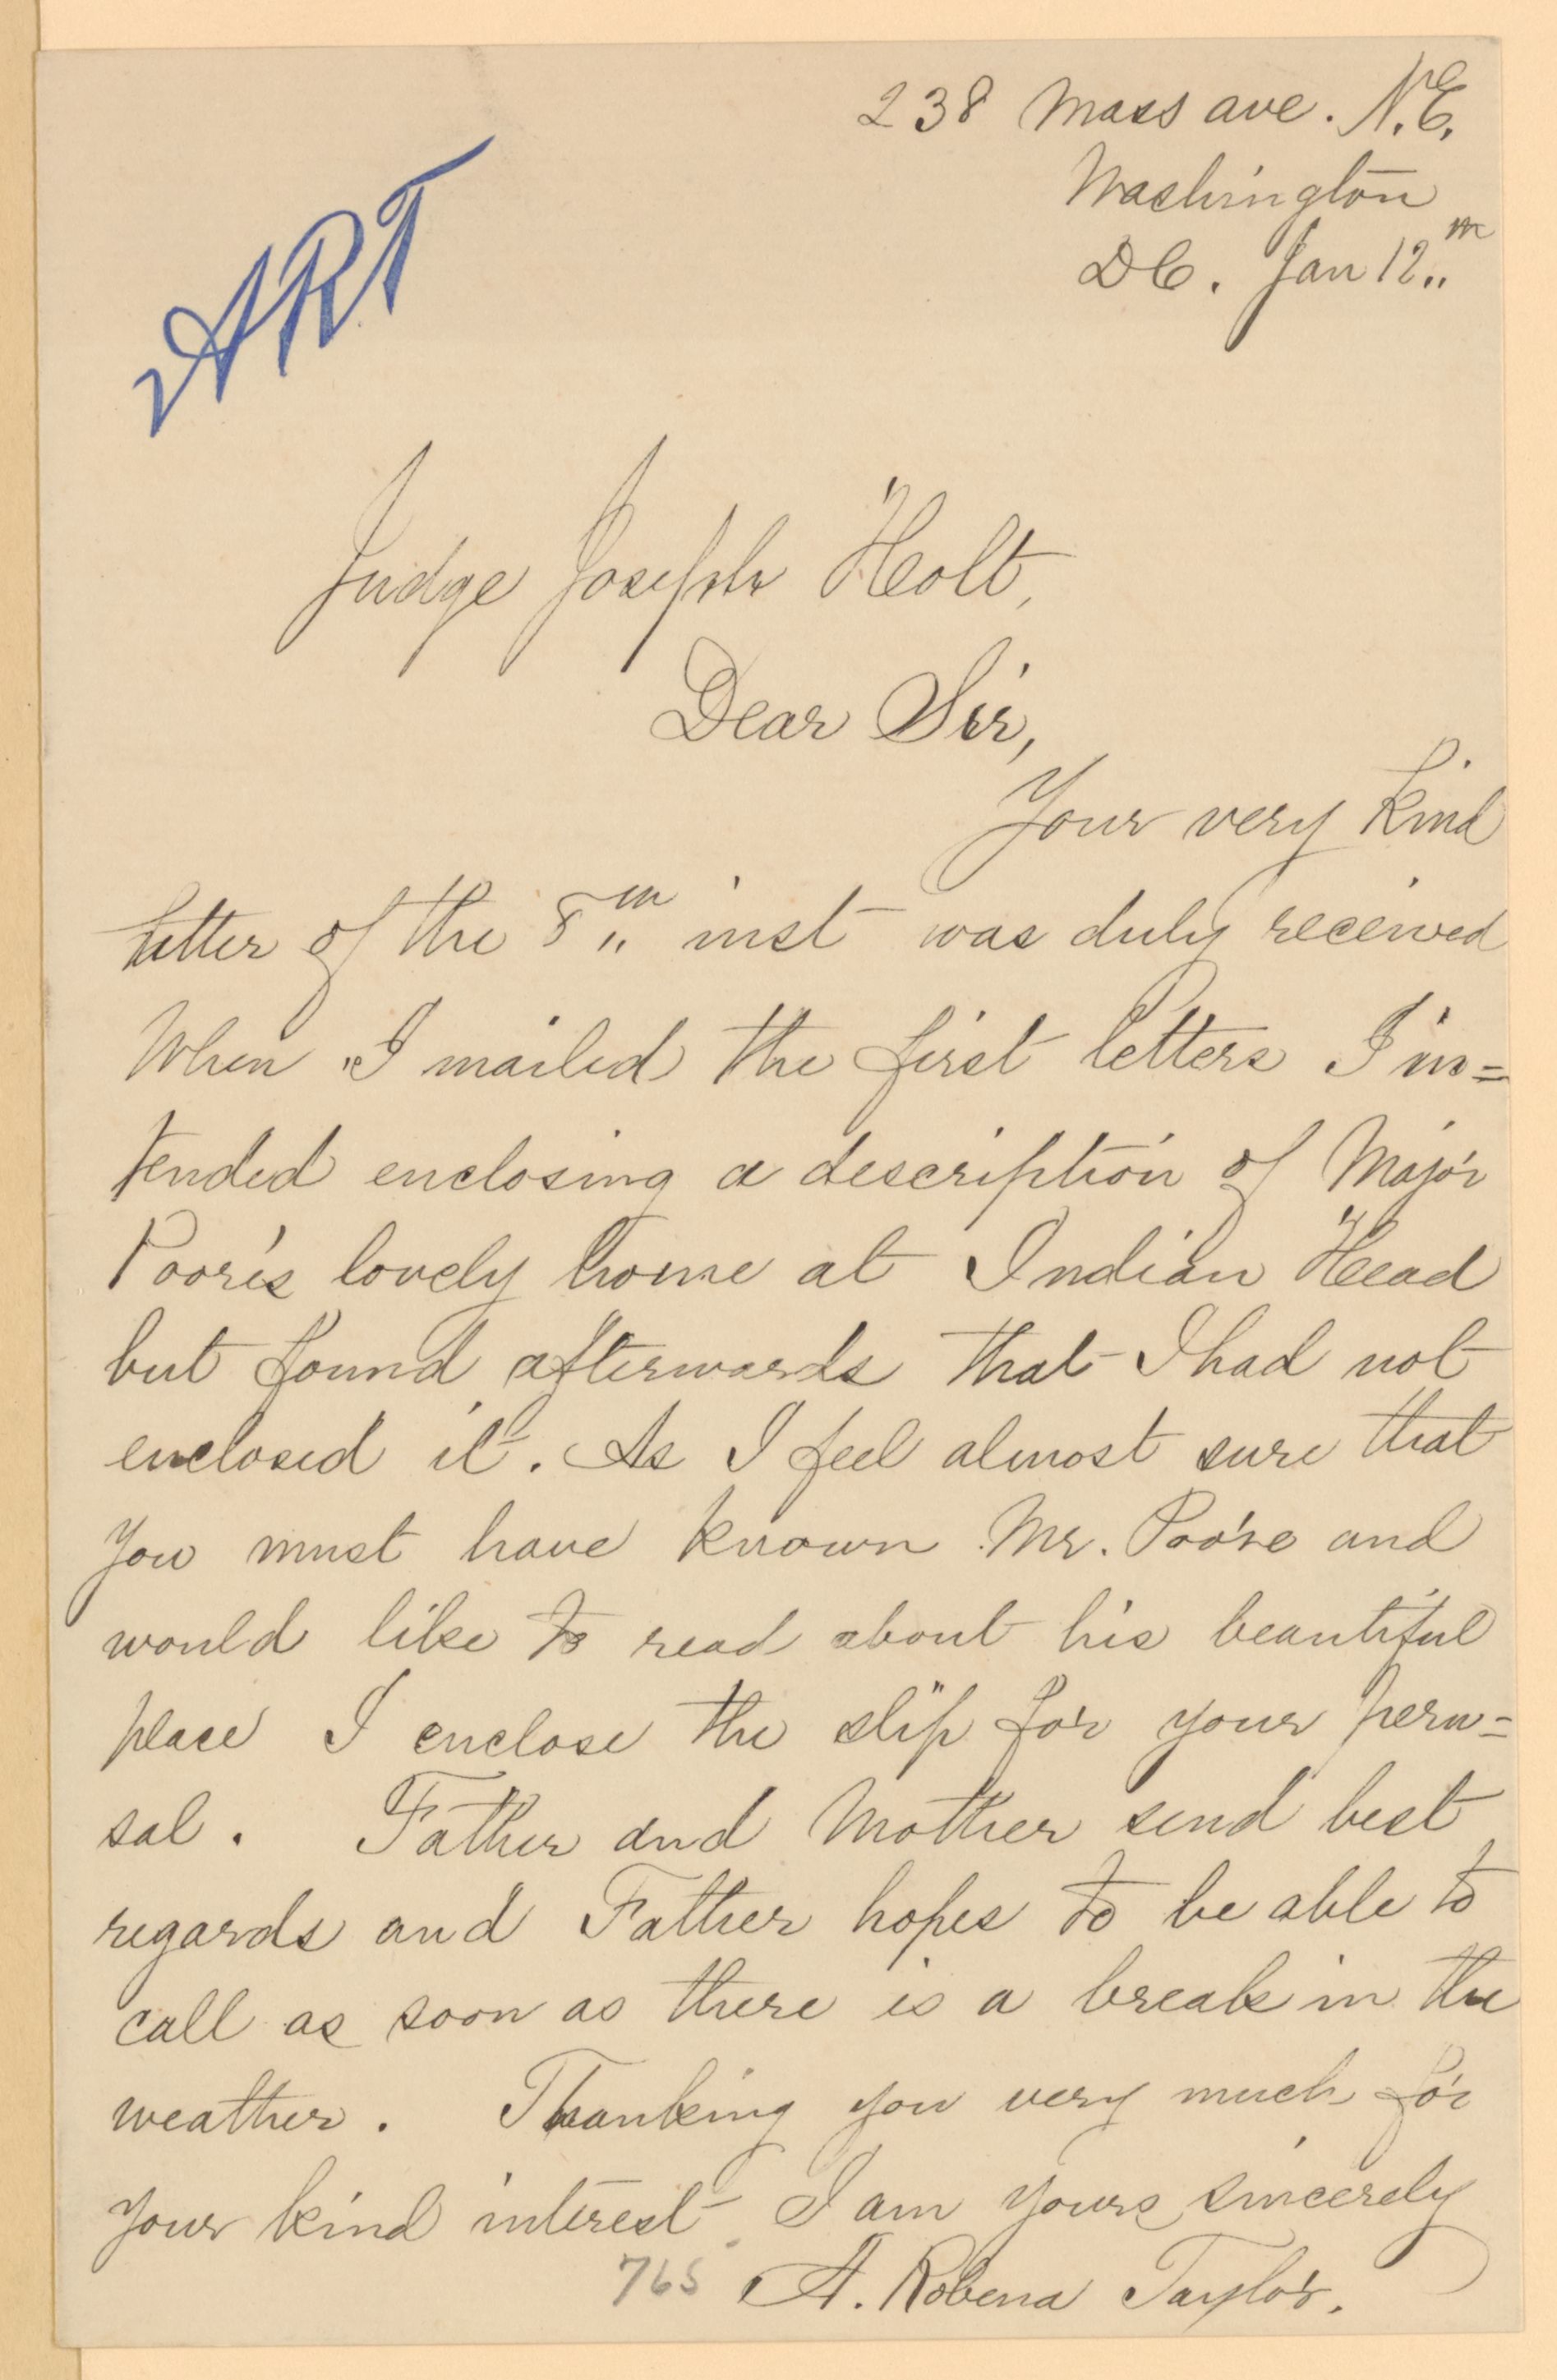 238 Mass ave. N.E.
Washington
DC. Jan 12th
ART
Judge Joseph Holt,
Dear Sir,
Your very kind
letter of the 8th inst was duly received
When I mailed the first letters I in=
tended enclosing a description of Major
Poore's lovely home at Indian Head
but found afterwards that I had not
enclosed it. As I feel almost sure that
you must have known Mr. Poore and
would like to read about his beautiful
place I enclose the slip for your peru=
sal. Father and Mother send best
regards and Father hopes to be able to
call as soon as there is a break in the
weather. Thanking you very much for
your kind interest I am yours sincerely
765 A. Robena Taylor.